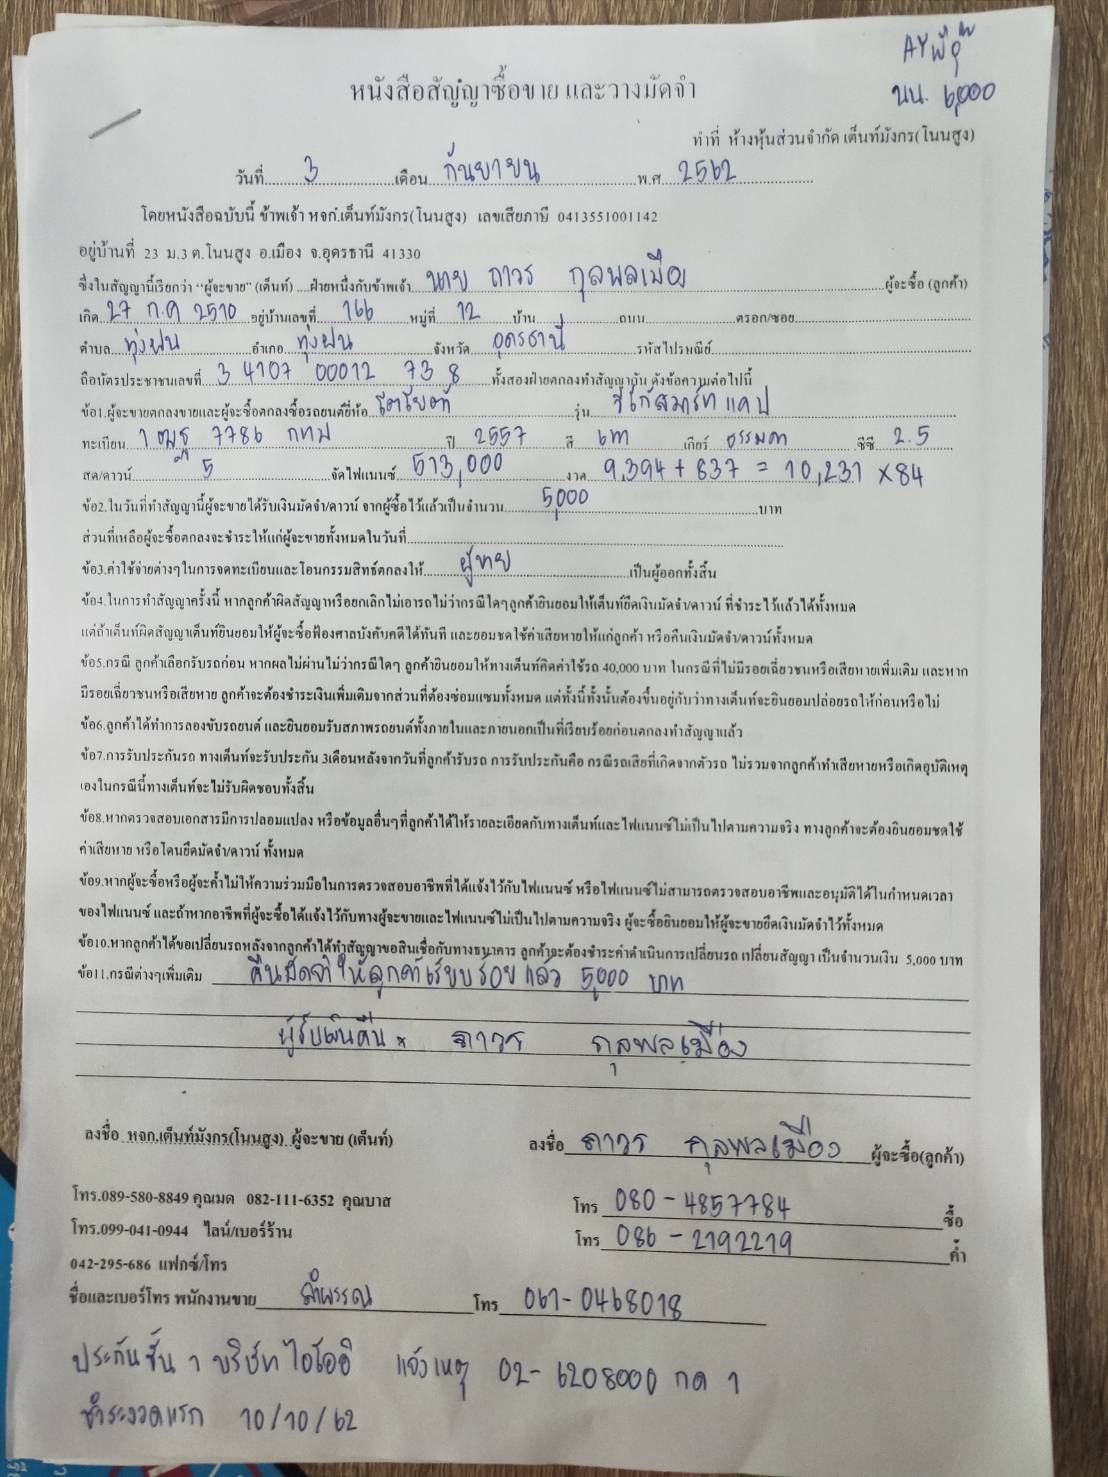 AY พี่อุ๊
นน. 6,000
หนังสือสัญญาซื้อขาย และวางมัดจำ
ทำที่ ห้างหุ้นส่วนจำกัด เต็นท์มังกร(โนนสูง)
วันที่ 3 เดือน กันยายน พ.ศ 2562
โดยหนังสือฉบับนี้ ข้าพเจ้า หจก.เต็นท์มังกร(โนนสูง) เลขเสียภาษี 0413551001142
อยู่บ้านที่ 23 ม.3 ต.โนนสูง อ.เมือง จ.อุดรธานี 41330
ซึ่งในสัญญานี้เรียกว่า "ผู้จะขาย" (เต็นท์) ....ฝ่ายหนึ่งกับข้าพเจ้า นาย ถาวร กุลพลเมือง ผู้จะซื้อ (ลูกค้า)
เกิด 27 ก.ค 2510 อยู่บ้านเลขที่ 166 หมู่ที่ 12 บ้าน ถนน ตรอก/ซอย
ตำบล ทุ่งฝน อำเภอ ทุ่งฝน จังหวัด อุดรธานี รหัสไปรษณีย์
ถือบัตรประชาชนเลขที่ 3 4107 00012 73 8 ทั้งสองฝ่ายตกลงทำสัญญากัน ดังข้อความต่อไปนี้
ข้อ1.ผู้จะขายตกลงขายและผู้จะซื้อตกลงซื้อรถยนต์ยี่ห้อ โตโยต้า รุ่น วีโก้สมาร์ทแคป
ทะเบียน 1 ฒฐ 7786 กทม ปี 2557 สี เทา เกียร์ ธรรมดา ซีซี 2.5
สด/ดาวน์ 5 จัดไฟแนนซ์ 513,000 งวด 9,394 + 837 = 10,231 x 84
ข้อ2.ในวันที่ทำสัญญานี้ผู้จะขายได้รับเงินมัดจำ/ดาวน์ จากผู้ซื้อไว้แล้วเป็นจำนวน 5,000 บาท
ส่วนที่เหลือผู้จะซื้อตกลงจะชำระให้แก่ผู้จะขายทั้งหมดในวันที่
ข้อ3.ค่าใช้จ่ายต่างๆในการจดทะเบียนและโอนกรรมสิทธ์ตกลงให้ ผู้ขาย เป็นผู้ออกทั้งสิ้น
ข้อ4.ในการทำสัญญาครั้งนี้ หากลูกค้าผิดสัญญาหรือยกเลิกไม่เอารถไม่ว่ากรณีใดๆลูกค้ายินยอมให้เต็นท์ยึดเงินมัดจำ/ดาวน์ ที่ชำระไว้แล้วได้ทั้งหมด
แต่ถ้าเต็นท์ผิดสัญญาเต็นท์ยินยอมให้ผู้จะซื้อฟ้องศาลบังคับคดีได้ทันที และยอมชดใช้ค่าเสียหายให้แก่ลูกค้า หรือคืนเงินมัดจำ/ดาวน์ทั้งหมด
ข้อ5.กรณี ลูกค้าเลือกรับรถก่อน หากผลไม่ผ่านไม่ว่ากรณีใดๆ ลูกค้ายินยอมให้ทางเต็นท์คิดค่าใช้รถ 40,000 บาท ในกรณีที่ไม่มีรอยเฉี่ยวชนหรือเสียหายเพิ่มเติม และหาก
มีรอยเฉี่ยวชนหรือเสียหาย ลูกค้าจะต้องชำระเงินเพิ่มเติมจากส่วนที่ต้องซ่อมแซมทั้งหมด แต่ทั้งนี้ทั้งนั้นต้องขึ้นอยู่กับว่าทางเต็นท์จะยินยอมปล่อยรถให้ก่อนหรือไม่
ข้อ6.ลูกค้าได้ทำการลองขับรถยนต์ และยินยอมรับสภาพรถยนต์ทั้งภายในและภายนอกเป็นที่เรียบร้อยก่อนตกลงทำสัญญาแล้ว
ข้อ7.การรับประกันรถ ทางเต็นท์จะรับประกัน 3เดือนหลังจากวันที่ลูกค้ารับรถ การรับประกันคือ กรณีรถเสียที่เกิดจากตัวรถ ไม่รวมจากลูกค้าทำเสียหายหรือเกิดอุบัติเหตุ
เองในกรณีนี้ทางเต็นท์จะไม่รับผิดชอบทั้งสิ้น
ข้อ8.หากตรวจสอบเอกสารมีการปลอมแปลง หรือข้อมูลอื่นๆที่ลูกค้าได้ให้รายละเอียดกับทางเต็นท์และไฟแนนซ์ไม่เป็นไปตามความจริง ทางลูกค้าจะต้องยินยอมชดใช้
ค่าเสียหาย หรือโดนยึดมัดจำ/ดาวน์ ทั้งหมด
ข้อ9.หากผู้จะซื้อหรือผู้จะค้ำไม่ให้ความร่วมมือในการตรวจสอบอาชีพที่ได้แจ้งไว้กับไฟแนนซ์ หรือไฟแนนซ์ไม่สามารถตรวจสอบอาชีพและอนุมัติได้ในกำหนดเวลา
ของไฟแนนซ์ และถ้าหากอาชีพที่ผู้จะซื้อได้แจ้งไว้กับทางผู้จะขายและไฟแนนซ์ไม่เป็นไปตามความจริง ผู้จะซื้อยินยอมให้ผู้จะขายยึดเงินมัดจำไว้ทั้งหมด
ข้อ10.หากลูกค้าได้ขอเปลี่ยนรถหลังจากลูกค้าได้ทำสัญญาขอสินเชื่อกับทางธนาคาร ลูกค้าจะต้องชำระค่าดำเนินการเปลี่ยนรถ เปลี่ยนสัญญา เป็นจำนวนเงิน 5,000 บาท
ข้อ11.กรณีต่างๆเพิ่มเติม คืนมัดจำให้ลูกค้าเรียบร้อยแล้ว 5,000 บาท
ผู้รับเงินคืน x ถาวร กุลพลเมือง
ลงชื่อ หจก.เต็นท์มังกร(โนนสูง) ผู้จะขาย (เต็นท์) ลงชื่อ ถาวร กุลพลเมือง ผู้จะซื้อ(ลูกค้า)
โทร.089-580-8849 คุณมด 082-111-6352 คุณบาส โทร 080-4857784 ซื้อ
โทร.099-041-0944 ไลน์/เบอร์ร้าน โทร 086-2192219 ค้ำ
042-295-686 แฟกซ์/โทร
ชื่อและเบอร์โทร พนักงานขาย ลำพรรณ โทร 061-0468018
ประกันชั้น 1 บริษัทไอโออิ แจ้งเหตุ 02-6208000 กด 1
ชำระงวดแรก 10/10/62